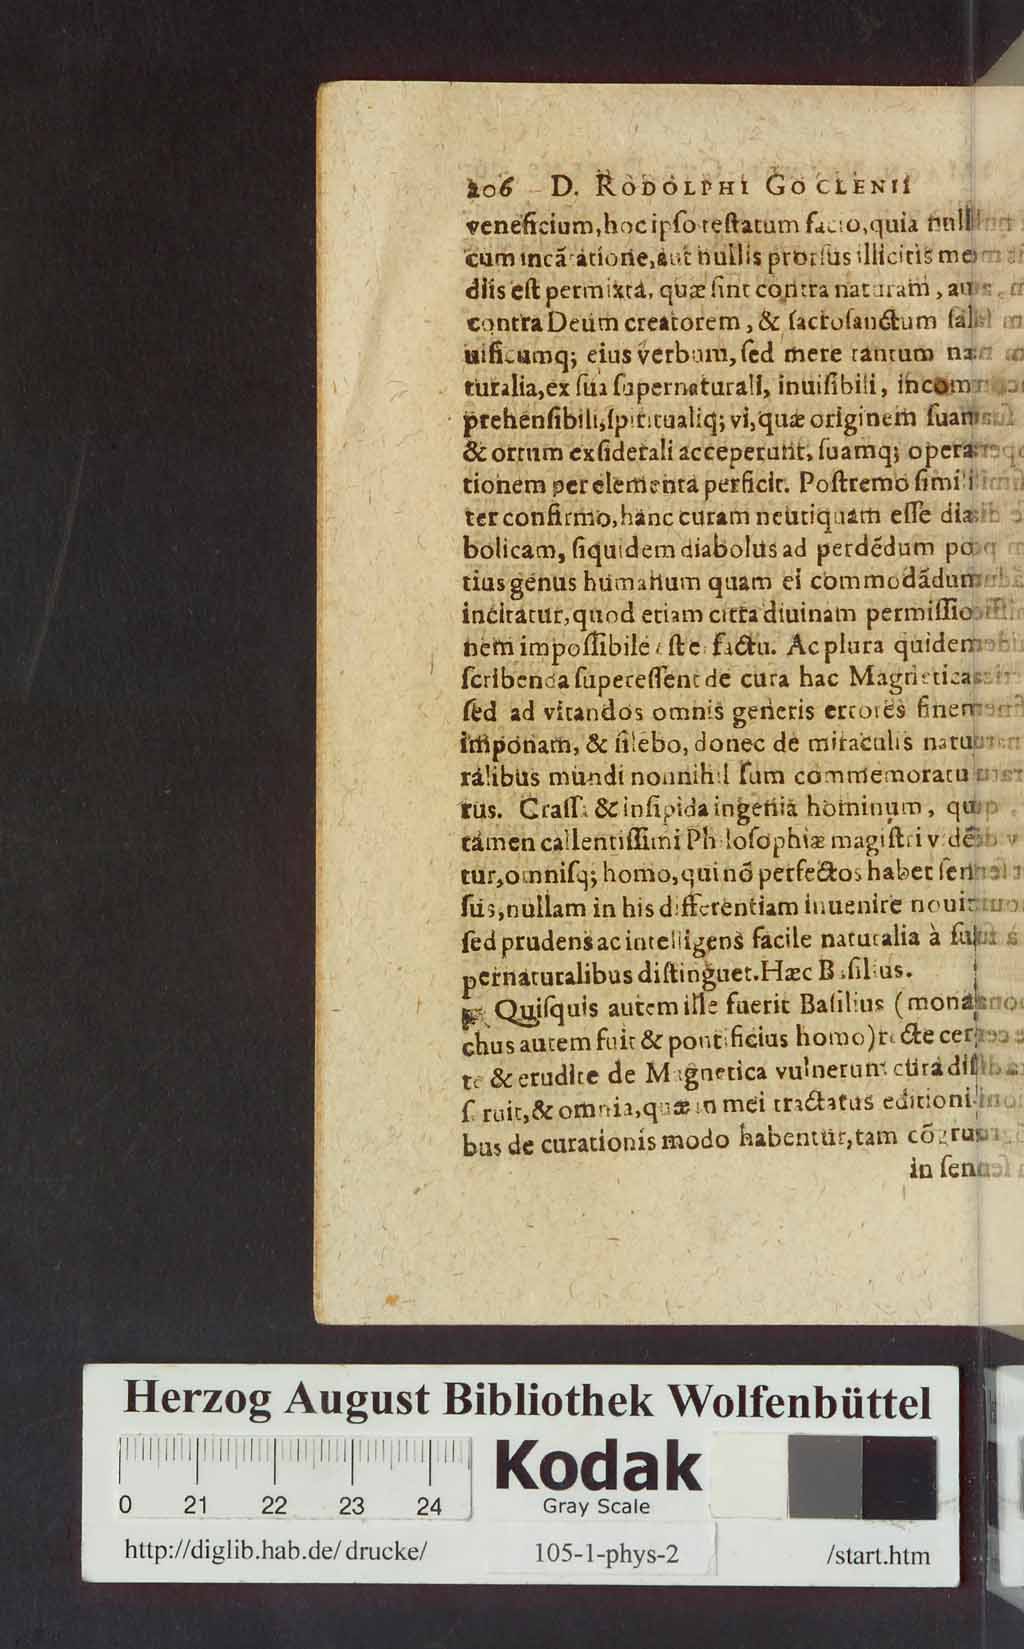 206 D. RODOLPHI GOCLENII
veneficium, hoc ipſo teſtatum facio, quia null
cum incãtatione, aut nullis prorſus illicitis me
diis eſt permixta, quæ ſint contra naturam, au
contra Deum creatorem, & ſacroſanctum ſal
uificumq; eius verbum, ſed mere tantum na
turalia, ex ſua ſupernaturali, inuiſibili, incom
prehenſibili, ſpiritualiq; vi, quæ originem ſuam
& ortum ex ſiderali acceperunt, ſuamq; opera
tionem per elementa perficit. Poſtremo ſimili
ter confirmo, hanc curam neutiquam eſſe dia
bolicam, ſiquidem diabolus ad perdẽdum po
tius genus humanum quam ei commodãdum
incitatur, quod etiam citra diuinam permiſſio
nem impoſſibile eſt factu. Ac plura quidem
ſcribenda ſupereſſent de cura hac Magnetica
ſed ad vitandos omnis generis errores finem
imponam, & ſilebo, donec de miraculis natu
ralibus mundi nonnihil ſum commemoratu
rus. Craſſa & inſipida ingenia hominum, qu
tamen callentiſſimi Philoſophiæ magiſtri vidẽ
tur, omniſq; homo, qui nõ perfectos habet ſen
ſus, nullam in his differentiam inuenire nouit
ſed prudens ac intelligens facile naturalia à ſu
pernaturalibus diſtinguet. Hæc Baſilius.
Quiſquis autem ille fuerit Baſilius (mona
chus autem fuit & pontificius homo) recte cer
te & erudite de Magnetica vulnerum cura diſ
ſeruit, & omnia, quæ in mei tractatus editioni
bus de curationis modo habentur, tam cõgru
in ſen
Herzog August Bibliothek Wolfenbüttel
0 21 22 23 24
Kodak
Gray Scale
http://diglib.hab.de/drucke/ 105-1-phys-2 /start.htm